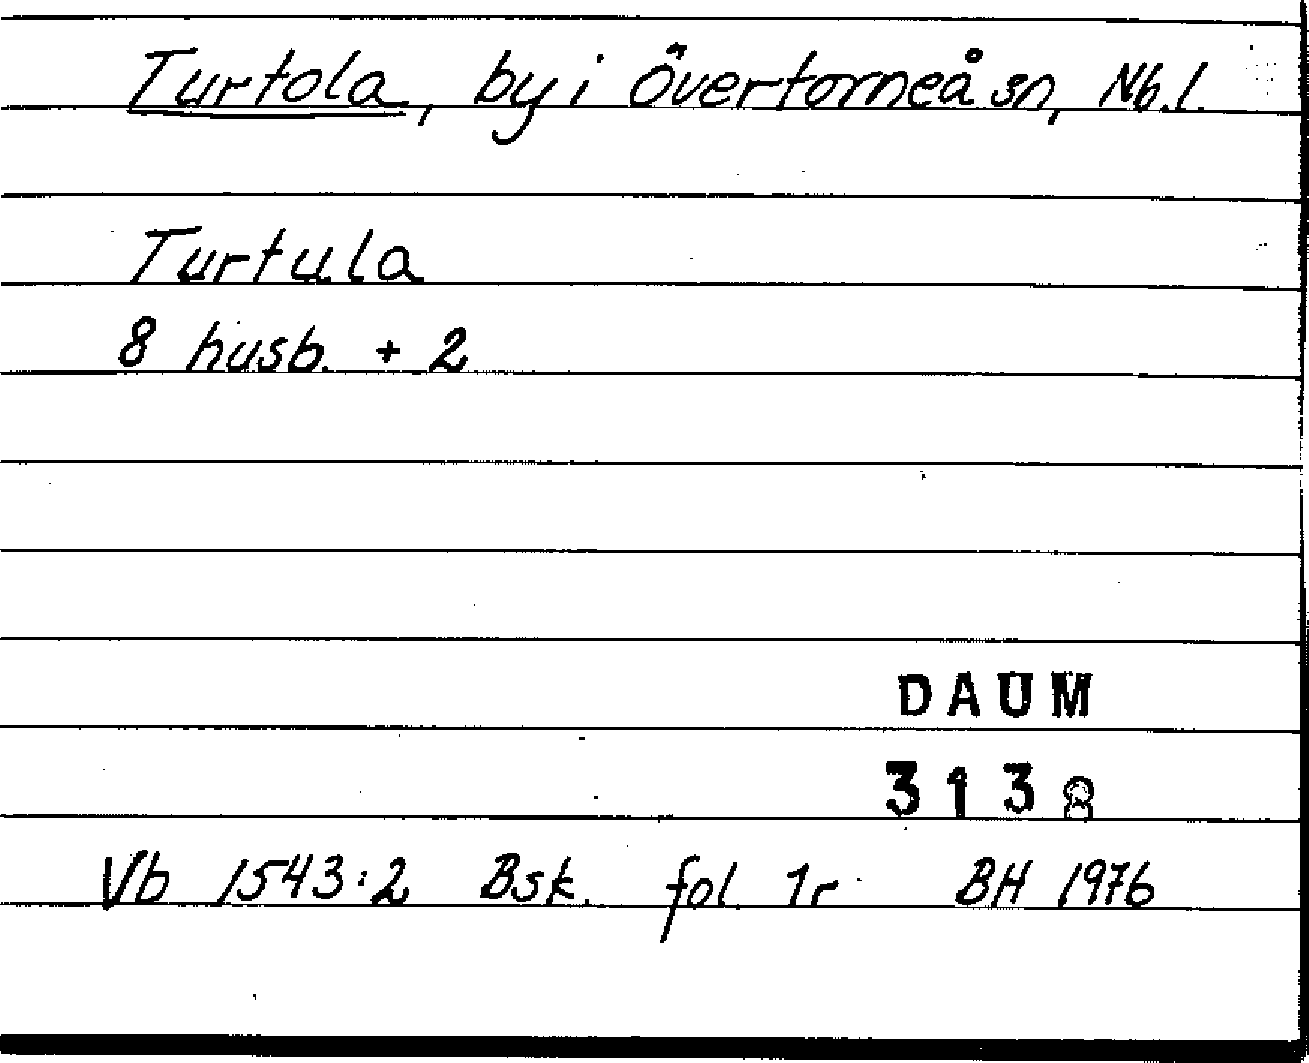 Turtola, by i Övertorneå sn, Nb.l.
Turtula
8 husb. + 2
DAUM
3138
Vb 1543:2 Bsk. fol. 1r BH 1976